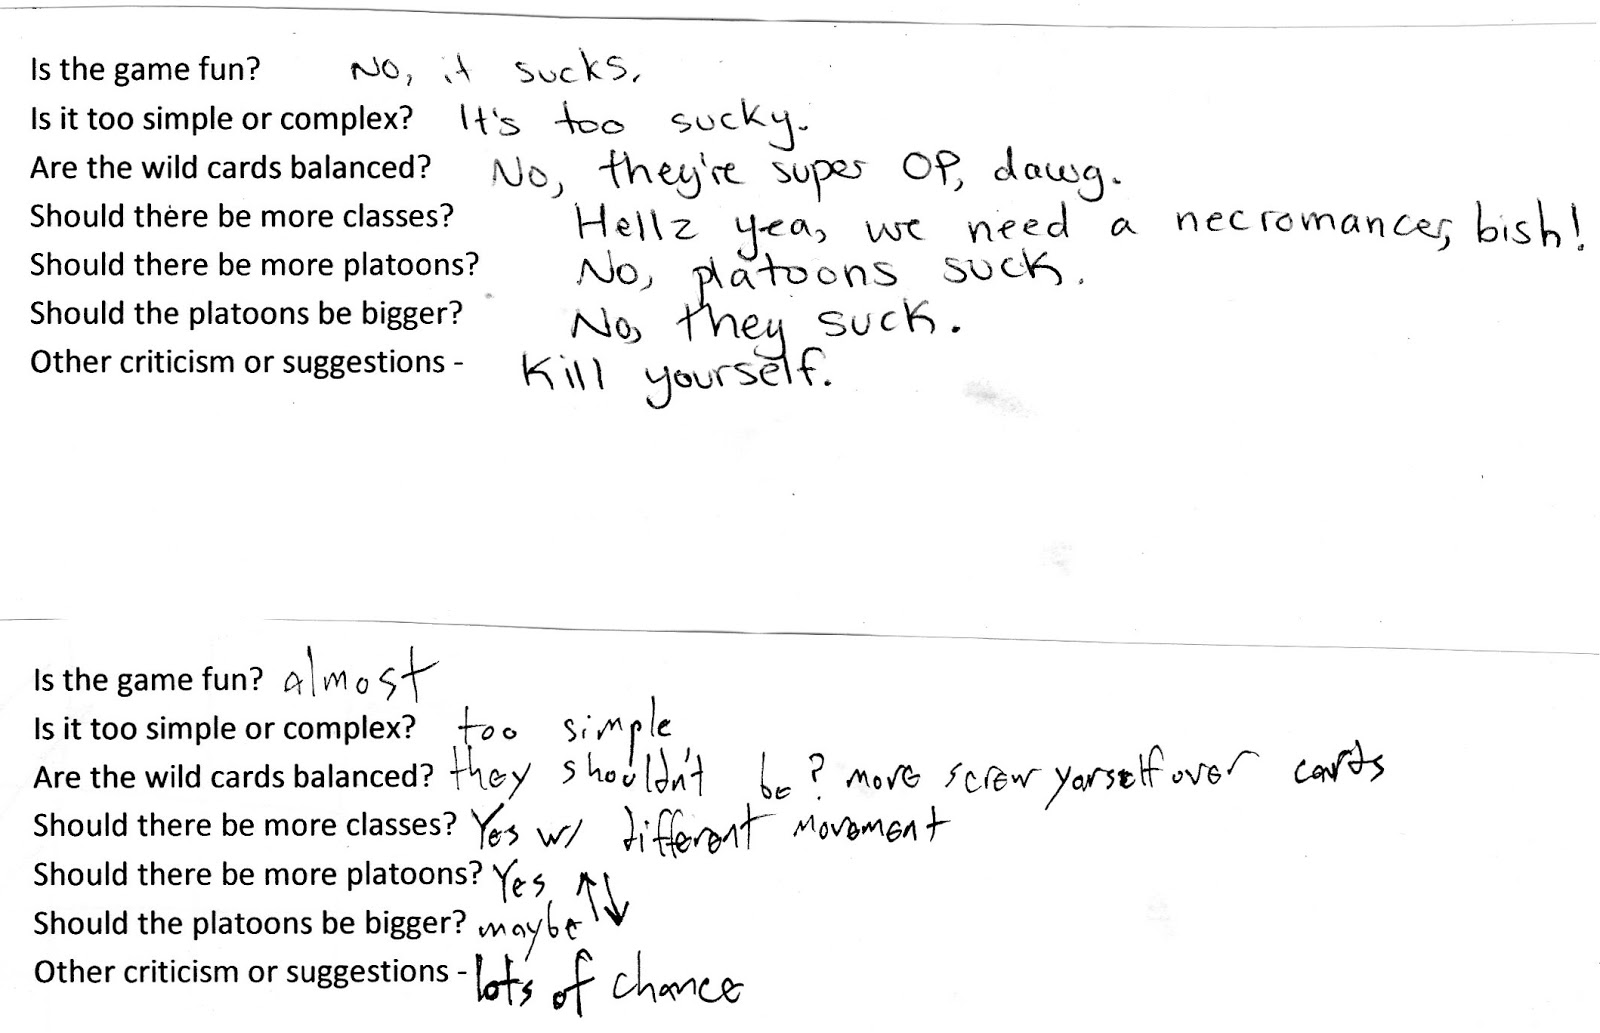 Is the game fun? No, it sucks.
Is it too simple or complex? It's too sucky.
Are the wild cards balanced? No, they're super OP, dawg.
Should there be more classes? Hellz yea, we need a necromancer, bish!
Should there be more platoons? No, platoons suck.
Should the platoons be bigger? No, they suck.
Other criticism or suggestions - Kill yourself.
Is the game fun? almost
Is it too simple or complex? too simple
Are the wild cards balanced? they shouldn't be? more screw yarself over cards
Should there be more classes? Yes w/ different movement
Should there be more platoons? Yes ↑↓
Should the platoons be bigger? maybe
Other criticism or suggestions - lots of chance